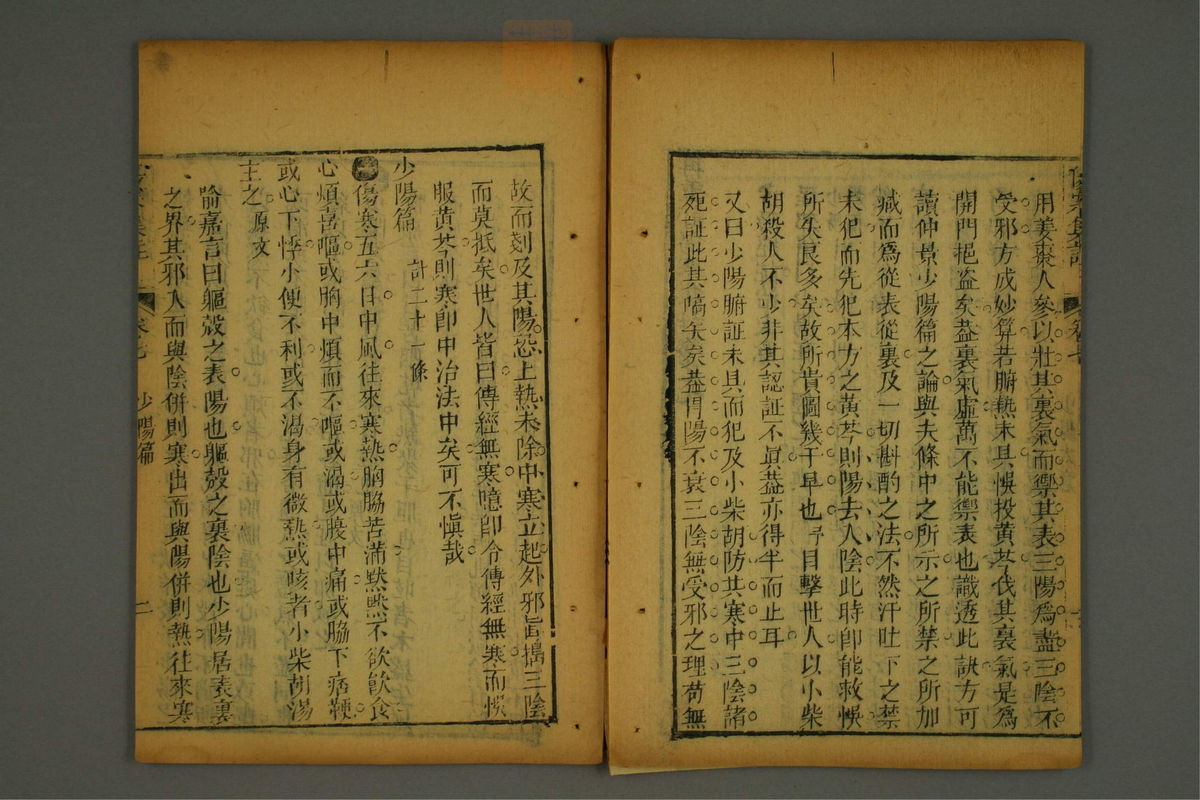 用姜棗人參以壯其裏氣而禦其表三陽為盡三陰不
受邪方成妙算若腑熱未具悞投黃芩伐其裏氣是為
開門揖盜矣葢裏氣虛萬不能禦表也識透此訣方可
讀仲景少陽篇之論與夫條中之所示之所禁之所加
減而為從表從裏及一切斟酌之法不然汗吐下之禁
未犯而先犯本方之黃芩則陽去入陰此時卽能救悞
所失良多矣故所貴圖幾于早也予目擊世人以小柴
胡殺人不少非其認証不真葢亦得半而止耳
又曰少陽腑証未具而犯及小柴胡防其寒中三陰諸
死証此其嚆矢矣葢胃陽不衰三陰無受邪之理苟無
故而剋及其陽恐上熱未除中寒立起外邪旨搗三陰
而莫抵矣世人皆曰傳經無寒噫卽令傳經無寒而悞
服黃芩則寒卽中治法中矣可不愼哉
少陽篇
計二十一條
傷寒五六日中風往來寒熱胸脇苦滿默默不欲飮食
心煩喜嘔或胸中煩而不嘔或渴或腹中痛或脇下痞鞕
或心下悸小便不利或不渴身有微熱或咳者小柴胡湯
主之原文
喻嘉言曰軀殼之表陽也軀殼之裏陰也少陽居表裏
之界其邪入而與陰併則寒出而與陽併則熱往來寒
少陽篇 二